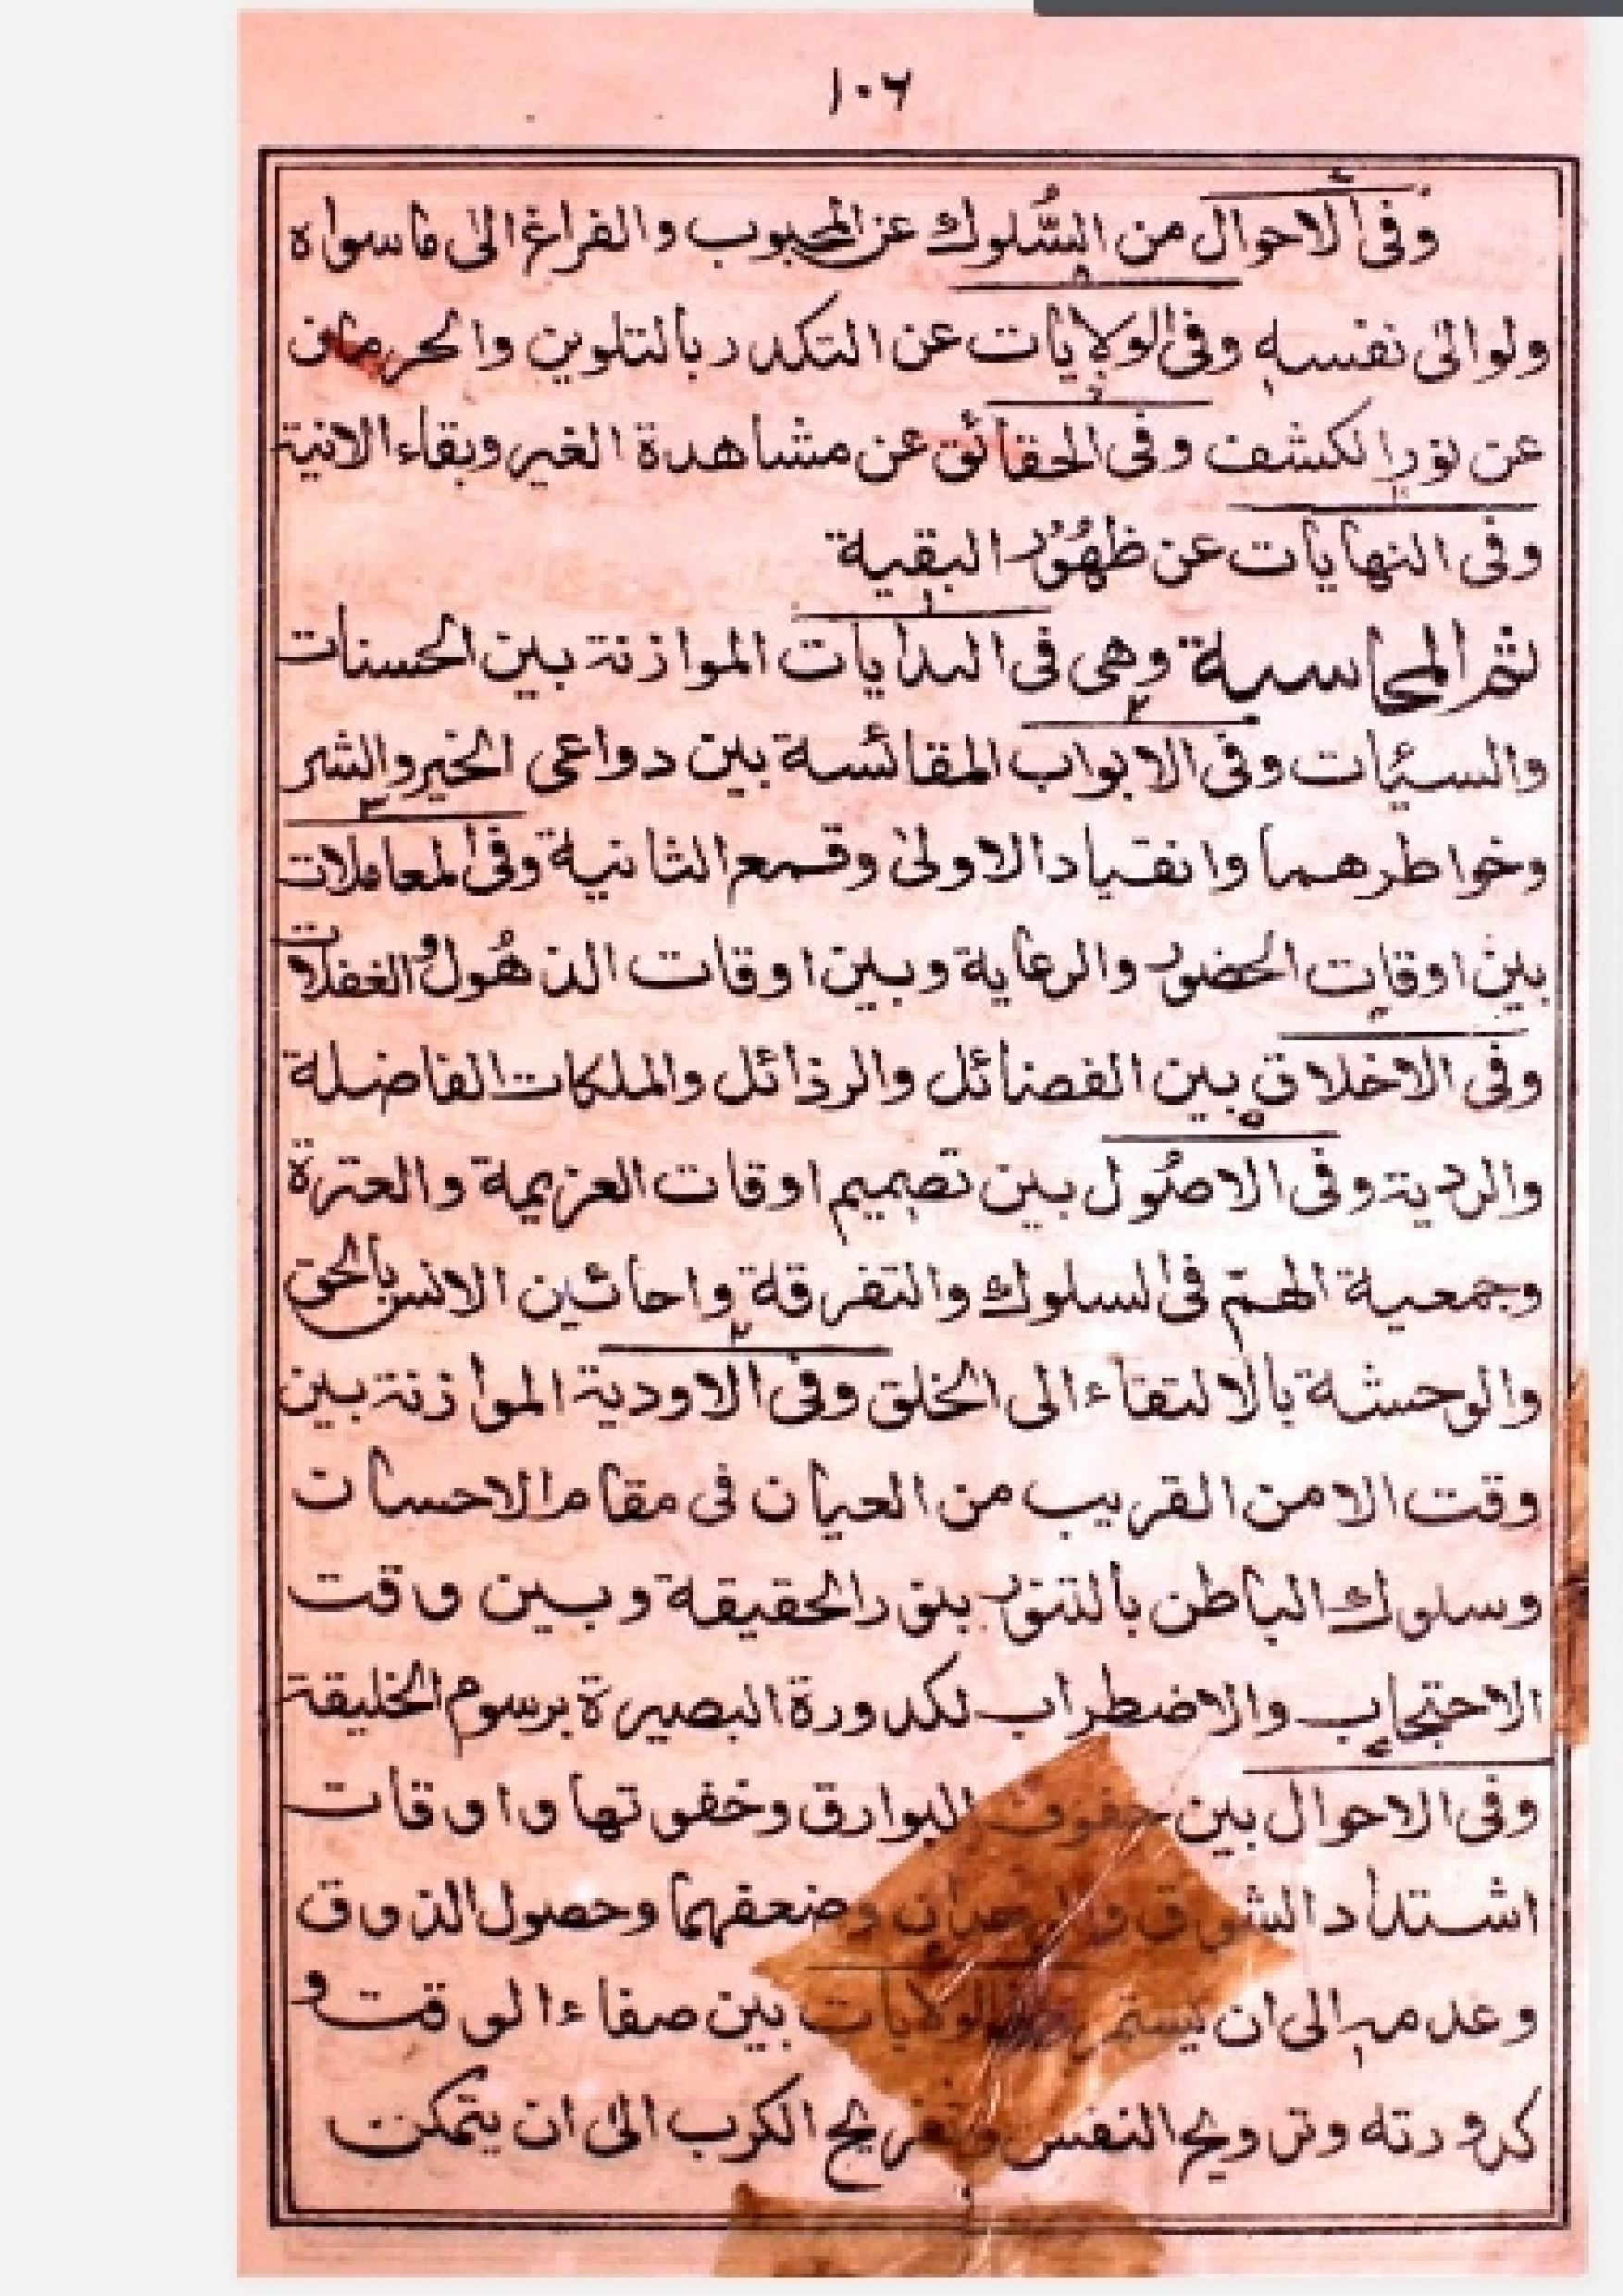 ١٠٦
وفى الاحوال من السُّلوك عن المحبوب والفراغ الى ماسواه
ولو الى نفسه وفى الولايات عن التكدر بالتلوين والحرمان
عن نور الكشف وفى الحقائق عن مشاهدة الغير وبقاء الانية
وفى النهايات عن ظهُوُر البقية
ثم المحاسبة وهى فى البدايات الموازنة بين الحسنات
والسيئات وفى الابواب المقائسة بين دواعى الخير والشر
وخواطرهما وانقياد الاولىٰ وقمع الثانية وفى المعاملات
بين اوقات الحضور والرعاية وبين اوقات الذهُول والغفلات
وفى الاخلاق بين الفضائل والرذائل والملكات الفاضلة
والردية وفى الاصُول بين تصميم اوقات العزيمة والعترة
وجمعية الهمّ فى السلوك والتفرقة واحائين الانس بالحق
والوحشة بالالتقاء الى الخلق وفى الاودية الموازنة بين
وقت الامن القريب من العيان فى مقام الاحسان
وسلوك الباطن بالتنور بنور الحقيقة وبين وقت
الاحتجاب والاضطراب لكدورة البصيرة برسوم الخليقة
وفى الاحوال بين خفوق البوارق وخفوتها واوقات
اشتداد الشوق والوجدان وضعفهما وحصول الذوق
وعدمه الى ان يستمر الولايات بين صفاء الوقت و
كرورته وترويح النفس وتفريح الكرب الى ان يتمكن